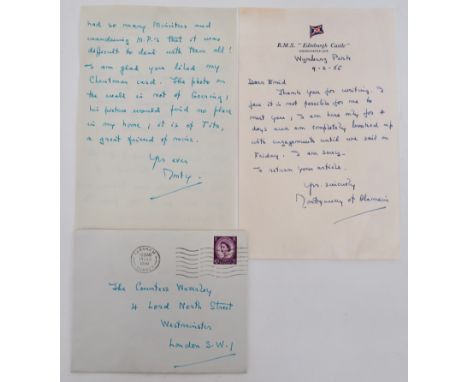 had so many Ministers and
wandering M.P.s that it was
difficult to deal with them all!
I am glad you liked my
Christmas card. The photo on
the wall is not of Goering;
his picture would find no place
in my home; it is of Tito,
a great friend of mine.
Yrs ever
Monty.
R.M.S. "Edinburgh Castle"
Wynberg Park
Dear Enid
Thank you for writing. I
fear it is not possible for me to
meet you; I am here only for 4
days and am completely booked up
with engagements until we sail on
Friday. I am sorry.
I return your article.
Yrs. sincerely
Montgomery of Alamein
FARNHAM
SURREY
The Countess Waverley
4 Lord North Street
Westminster
London S.W.1